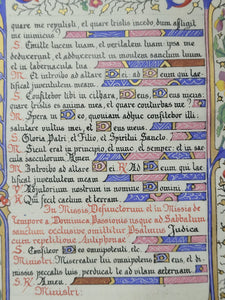 quare me repulisti, et quare tristis incedo dum affligit
me inimicus
S. Emitte lucem tuam, et veritatem tuam ipsa me
deduxerunt, et adduxerunt in montem sanctum tuum
et in tabernacula tua.
M. Et introibo ad altare Dei ad eum qui lae
tificat juventutem meam.
S. Confitebor tibi in cithara, Deus, Deus meus:
quare tristis es anima mea, et quare conturbas me?
M. Spera in Deo, quoniam adhuc confitebor illi:
salutare vultus mei, et Deus meus
S. Gloria Patri et Filio, et Spiritui Sancto
M. Sicut erat in principio, et nunc, et semper: et in sae
cula saeculorum Amen
S. Introibo ad altare Dei R. Ad eum qui lae
tificat juventutem meam.
V. Adjutorium nostrum in nomine Domini
R. Qui fecit caelum et terram
In Missis Defunctorum et in Missis de
Tempore a Dominica Passionis usque ad Sabbatum
sanctum exclusive omittitur Psalmus Judica
cum repetitione Antiphonae
S. Confiteor Deo omnipotenti etc.
Ministri. Misereatur tui omnipotens Deus, et di
missis peccatis tuis, perducat te ad vitam aeternam
S. Amen
Ministri: